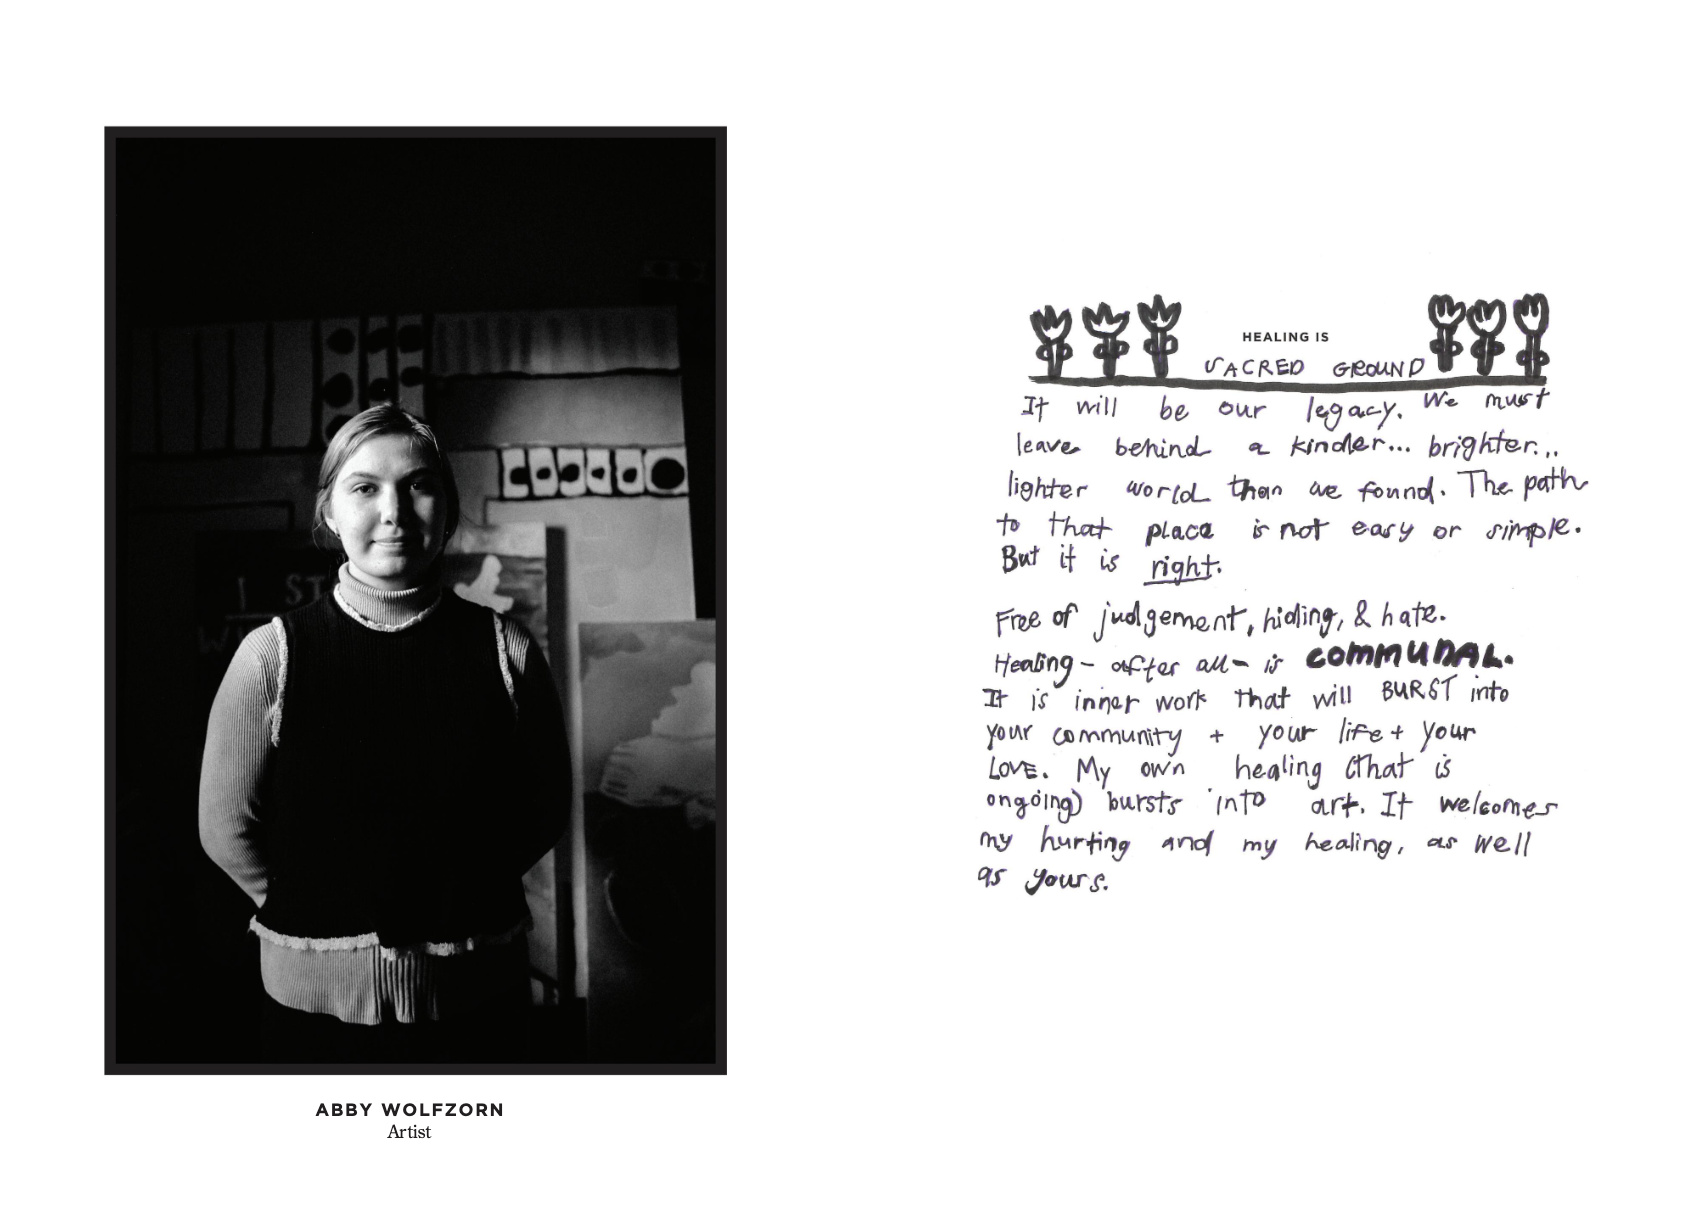 I ST
W
ABBY WOLFZORN
Artist
HEALING IS
SACRED GROUND
It will be our legacy. We must
leave behind a kinder... brighter...
lighter world than we found. The path
to that place is not easy or simple.
But it is right.
Free of judgement, hiding, & hate.
Healing - after all - is COMMUNAL.
It is inner work that will BURST into
your community + your life + your
LOVE. My own healing (that is
ongoing) bursts into art. It welcomes
my hurting and my healing, as well
as yours.